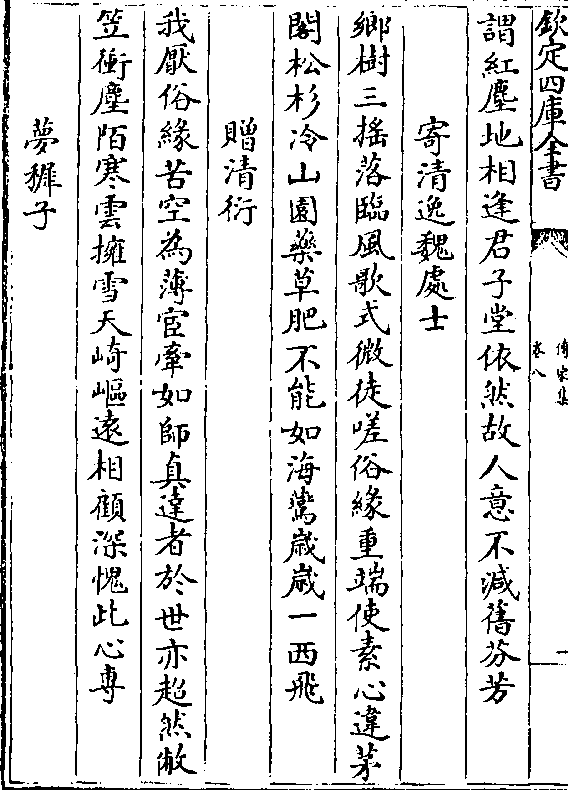 欽定四庫全書
傳家集
卷八
謂紅塵地相逢君子堂依然故人意不減舊芬芳
寄清逸魏處士
鄉樹三搖落臨風歌式微徒嗟俗緣重端使素心違茅
閣松杉冷山園藥草肥不能如海鷰歲歲一西飛
贈清衍
我厭俗緣苦空為薄宦牽如師真達者於世亦超然敝
笠衝塵陌寒雲擁雪天崎嶇遠相顧深愧此心專
夢穉子